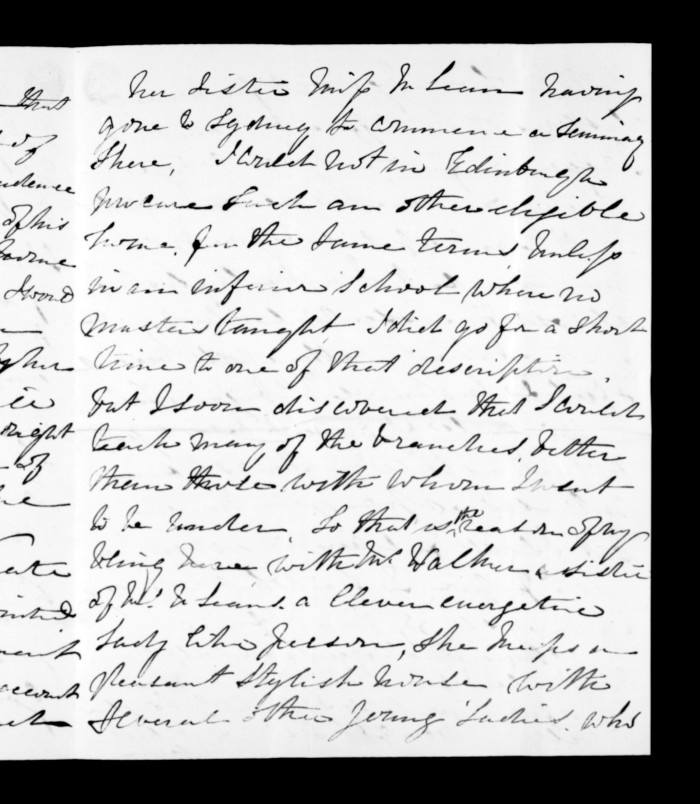 that
of
of his
I would
ought
of
account
her sister Miss McLean having
gone to Sydney to commence a Seminary
there, I could not in Edinburgh
procure such an other eligible
home, for the same terms, unless
in an inferior School where no
masters taught I did go for a short
time to one of that description,
but I soon discovered that I could
teach many of the branches, better
than those with whom I went
to be under, so that is the reason of my
being here with Mrs Walker a sister
of Mrs McLeans a Clever energetic
Lady like person, She keeps a
pleasant Stylish house with
several other young Ladies, who